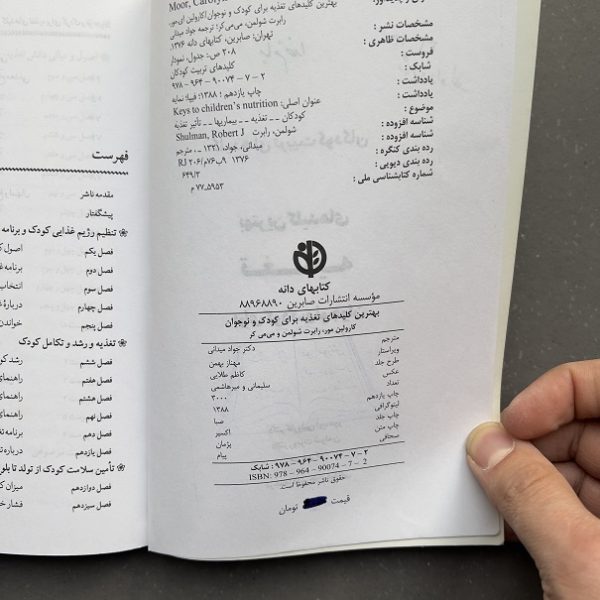 Moor, Carolyn
بهترین کلیدهای تغذیه برای کودک و نوجوان / کارولین مور،
رابرت شولمن، می‌مر کر؛ ترجمه جواد میدانی
مشخصات نشر : تهران: صابرین، کتابهای دانه ۱۳۷۶.
مشخصات ظاهری : ۲۰۸ ص: جدول، نمودار
فروست : کلیدهای تربیت کودکان
شابک : ۹۷۸ – ۹۶۴ – ۹۰۰۷۴ – ۷ – ۲
یادداشت : چاپ یازدهم: ۱۳۸۸؛ فیپا: نمایه
یادداشت : عنوان اصلی: Keys to children's nutrition
موضوع : کودکان ــ تغذیه ــ بیماریها ــ تأثیر تغذیه
شناسه افزوده : شولمن، رابرت Shulman, Robert J
شناسه افزوده : میدانی، جواد، ۱۳۲۱ ــ، مترجم
رده بندی کنگره : ۱۳۷۶ ۹ب۷۶م/RJ ۲۰۶
رده بندی دیویی : ۶۴۹/۳
شماره کتابشناسی ملی : ۵۹۵۳ـ۷۷ م
کتابهای دانه
مؤسسه انتشارات صابرین ۸۸۹۶۸۸۹۰
بهترین کلیدهای تغذیه برای کودک و نوجوان
کارولین مور، رابرت شولمن و می‌می کر
مترجم دکتر جواد میدانی
ویراستار مهناز بهمن
طرح جلد کاظم طلایی
عکس سلیمانی و میرهاشمی
تعداد ۳۰۰۰
چاپ یازدهم ۱۳۸۸
لیتوگرافی صبا
چاپ جلد اکسیر
چاپ متن پژمان
صحافی پیام
شابک : ۹۷۸ – ۹۶۴ – ۹۰۰۷۴ – ۷ – ۲
ISBN: 978 – 964 – 90074 – 7 – 2
حقوق ناشر محفوظ است.
قیمت تومان
فهرست
مقدمه ناشر
پیشگفتار
تنظیم رژیم غذایی کودک و برنامه
فصل یکم اصول ک
فصل دوم برنامه‌غ
فصل سوم انتخاب
فصل چهارم دربارهٔ
فصل پنجم خواندن
تغذیه و رشد و تکامل کودک
فصل ششم رشد کو
فصل هفتم راهنمای
فصل هشتم راهنمای
فصل نهم راهنمای
فصل دهم برنامه
فصل یازدهم درباره
تأمین سلامت کودک از تولد تا بلو
فصل دوازدهم میزان ک
فصل سیزدهم فشار خ